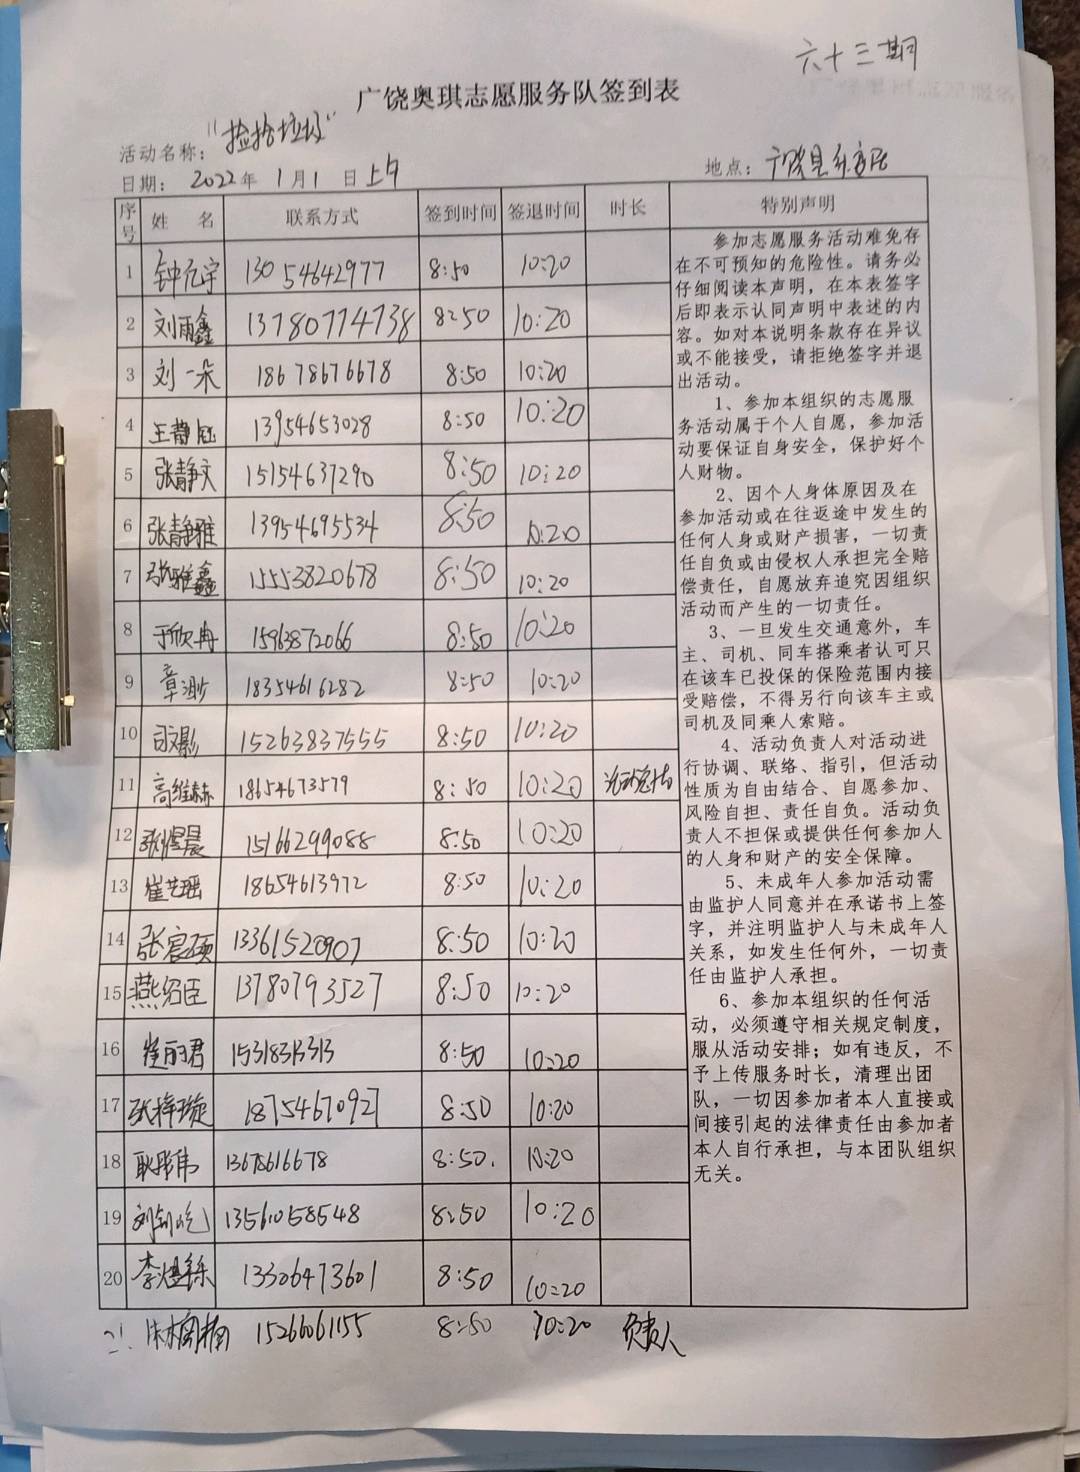 六十三期
广饶奥琪志愿服务队签到表
活动名称："捡拾垃圾"
日期：2022年1月1日上午 地点：广饶县乐安居
序号 姓 名 联系方式 签到时间 签退时间 时长 特别声明
1 钟元宇 13054642977 8:50 10:20
2 刘雨鑫 13780774738 8:50 10:20
3 刘一朵 18678676678 8:50 10:20
4 王静钰 13954653028 8:50 10:20
5 张静文 15154637290 8:50 10:20
6 张静雅 13954695534 8:50 10:20
7 张雅鑫 15553820678 8:50 10:20
8 于欣冉 15963872066 8:50 10:20
9 章渺 18354616282 8:50 10:20
10 15263837555 8:50 10:20
11 高维赫 18654673579 8:50 10:20 活动总结
12 张煜晨 15166299088 8:50 10:20
13 崔艺瑶 18654613972 8:50 10:20
14 张宸硕 13361520907 8:50 10:20
15 燕绍臣 13780793527 8:50 10:20
16 崔丽君 8:50 10:20
17 张梓璇 18754670927 8:50 10:20
18 耿彤伟 13678616678 8:50. 10:20
19 13561058548 8:50 10:20
20 13306473601 8:50 10:20
21. 15266061155 8:50 10:20 负责人
参加志愿服务活动难免存
在不可预知的危险性。请务必
仔细阅读本声明，在本表签字
后即表示认同声明中表述的内
容。如对本说明条款存在异议
或不能接受，请拒绝签字并退
出活动。
1、参加本组织的志愿服
务活动属于个人自愿，参加活
动要保证自身安全，保护好个
人财物。
2、因个人身体原因及在
参加活动或在往返途中发生的
任何人身或财产损害，一切责
任自负或由侵权人承担完全赔
偿责任，自愿放弃追究因组织
活动而产生的一切责任。
3、一旦发生交通意外，车
主、司机、同车搭乘者认可只
在该车已投保的保险范围内接
受赔偿，不得另行向该车主或
司机及同乘人索赔。
4、活动负责人对活动进
行协调、联络、指引，但活动
性质为自由结合、自愿参加、
风险自担、责任自负。活动负
责人不担保或提供任何参加人
的人身和财产的安全保障。
5、未成年人参加活动需
由监护人同意并在承诺书上签
字，并注明监护人与未成年人
关系，如发生任何外，一切责
任由监护人承担。
6、参加本组织的任何活
动，必须遵守相关规定制度，
服从活动安排；如有违反，不
予上传服务时长，清理出团
队，一切因参加者本人直接或
间接引起的法律责任由参加者
本人自行承担，与本团队组织
无关。